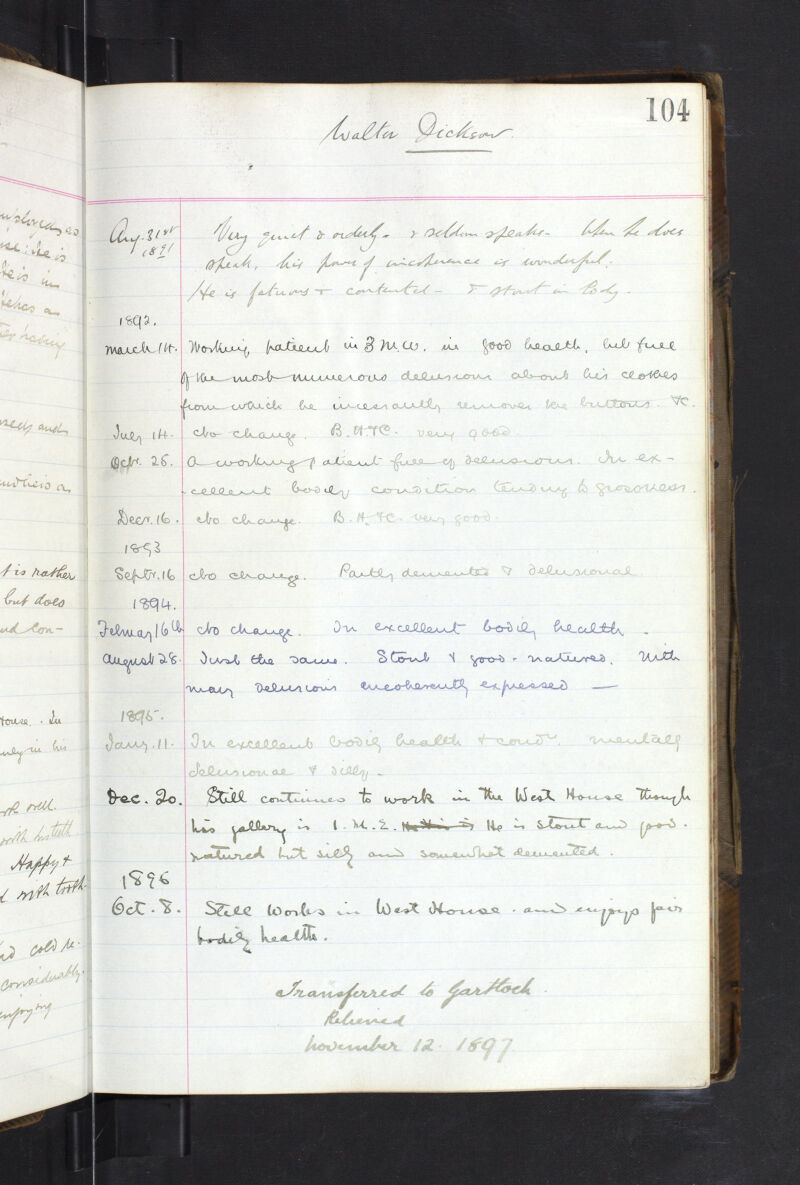 employed as
se: He is
He is in
tches as
having
and
and he is a
t is rather
but does
nd con-
House. In
ney in his
rk well.
with his teeth
Happy &
d with tooth-
nd cold re-
considerably.
enjoying
104
Walter Dickson.
Aug. 31st 1891
Very quiet & orderly. & seldom speaks. When he does
speak, his power of incoherence is wonderful.
He is fatuous & contented - & stout in body.
1892.
March 14. Working patient in 3 M.W. in good health, but full
of the most numerous delusions about his clothes
from which he incessantly removes the buttons. &c.
July 14. No change. B.H.&C. very good.
Octr. 26. A working patient full of delusions. In ex-
-cellent bodily condition tending to grossness.
Decr. 16. No change. B.H.&C. very good.
1893
Septr. 16 No change. Partly demented & delusional
1894.
Februay 16th No change. In excellent bodily health.
August 28. Just the same. Stout & good-natured. With
many delusions incoherently expressed —
1895.
Jany. 11. In excellent bodily health & condn. mentally
delusional & silly.
Dec. 20. Still continues to work in the West House though
his gallery is 1. M. E. He is stout and good-
natured but silly and somewhat demented.
1896
Oct. 8. Still works in West House. and enjoys fair
bodily health.
Transferred to Gartloch.
Relieved
November 12. 1897